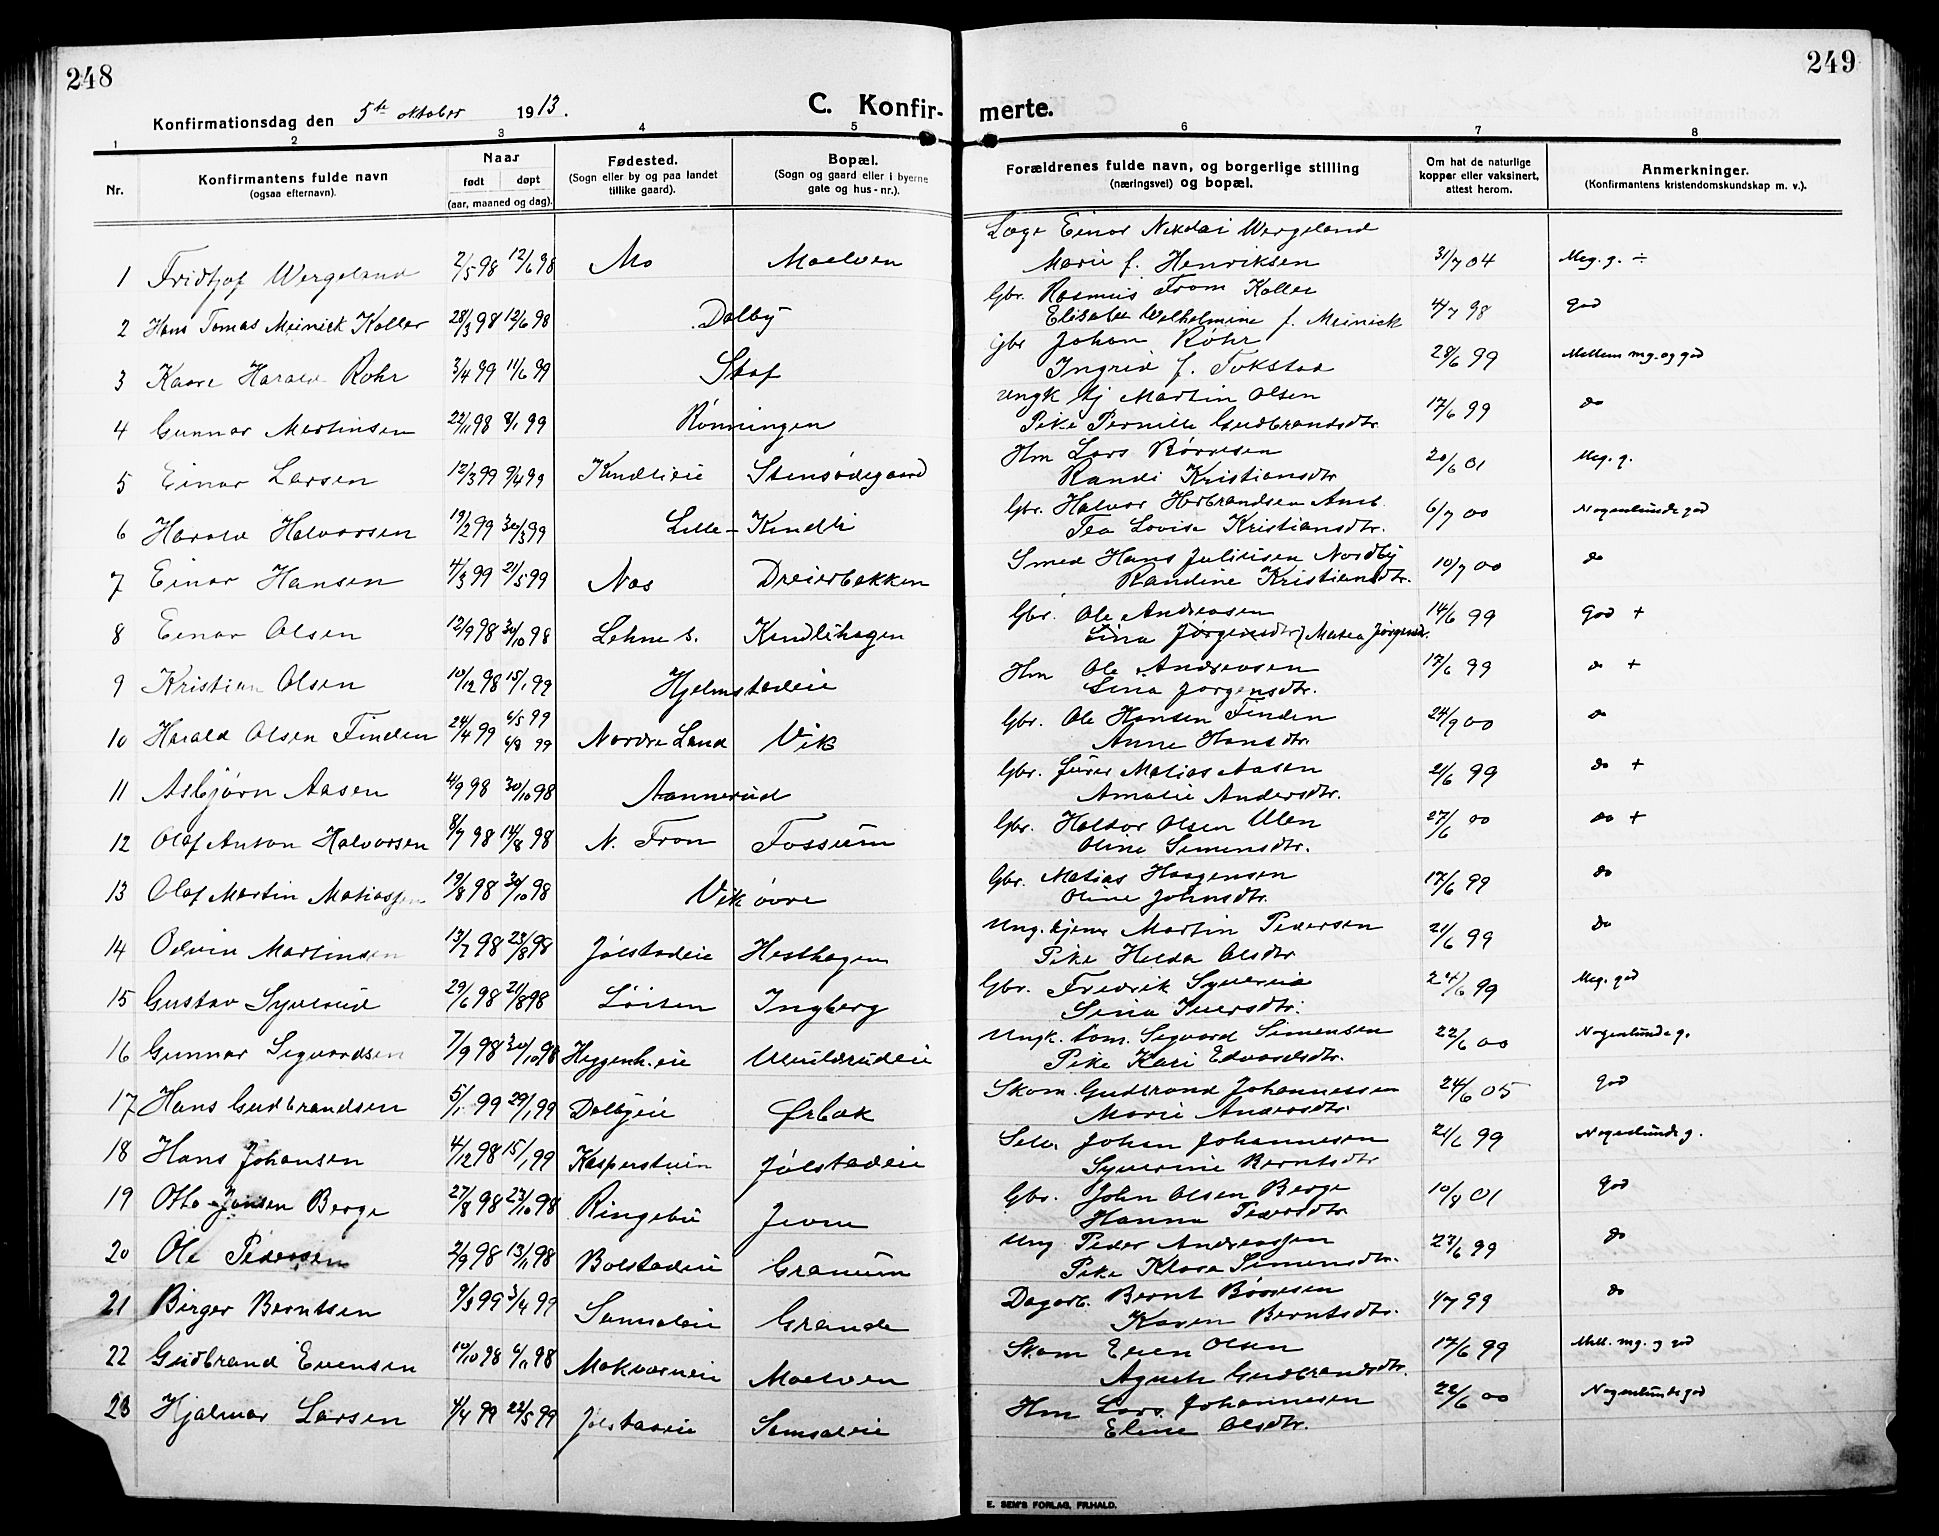 248
249
Konfirmationsdag den 5te oktober 1913.
C. Konfir-
merte.
1 2 3 4 5 6 7 8
Nr.
Konfirmantens fulde navn
(ogsaa efternavn).
Naar
født døpt
(aar, maaned og dag).
Fødested.
(Sogn eller by og paa landet
tillike gaard).
Bopæl.
(Sogn og gaard eller i byerne
gate og hus-nr.).
Forældrenes fulde navn, og borgerlige stilling
(næringsvei) og bopæl.
Om hat de naturlige
kopper eller vaksinert,
attest herom.
Anmerkninger.
(Konfirmantens kristendomskundskap m. v.).
Læge Einar Nikolai Wergeland
1 Fridtjof Wergeland 2/5 98 12/6 98 Mo Moelven Marie f. Henriksen 31/7 04 Meg. g. ÷
Gbr. Rasmus From Koller
2 Hans Tomas Meinick Koller 28/3 98 12/6 98 Dalby Elisabet Wilhelmine f. Meinick 4/7 98 god
Gbr Johan Røhr
3 Kaare Harald Røhr 3/4 99 11/6 99 Staf Ingrid f. Tokstad 28/6 99 Mellem mg. og god
Ungk tj Martin Olsen
4 Gunnar Martinsen 22/11 98 8/1 99 Rønningen Pike Pernille Gudbrandsdtr. 17/6 99 do
Hm Lars Børresen
5 Einar Larsen 12/3 99 9/4 99 Kindlieie Stensødegaard Randi Kristiansdtr 20/6 01 Meg. g.
Gbr. Halvor Herbrandsen Aml.
6 Harald Halvorsen 19/2 99 30/3 99 Lille-Kindli Tea Lovise Kristiansdtr. 6/7 00 Nogenlunde god
Smed Hans Juliusen Nordby
7 Einar Hansen 4/3 99 21/5 99 Nes Dreierbakken Randine Kristiansdtr. 10/7 00 do
Gbr. Ole Andreasen
8 Einar Olsen 12/9 98 30/10 98 Lehne s. Kindlihagen Lina Jørgensdtr / Matea Jørgensd. 14/6 99 God +
Hm Ole Andreasen
9 Kristian Olsen 10/12 98 15/1 99 Hjelmstadeie Lina Jørgensdtr. 17/6 99 do +
Gbr. Ole Hansen Finden
6/5 99
10 Harald Olsen Finden 24/4 99 6/8 99 Nordre Land Vik Anne Hansdtr. 24/9 00 do
Gbr. Matias Aasen
11 Asbjørn Aasen 4/9 98 30/10 98 Aannerud Amalie Andersdtr. 21/6 99 do +
Gbr. Haldor Olsen Ulen
12 Olaf Anton Halvorsen 8/7 98 14/8 98 N. Fron Fossum Oline Simensdtr. 27/6 00 do +
Gbr. Matias Haagensen
13 Olaf Martin Matiassen 19/8 98 30/10 98 Vik øvre Oline Johnsdtr. 17/6 99 do
Ung. tjener Martin Pedersen
14 Odvin Martinsen 13/7 98 23/8 98 Jølstadeie Hesthagen Pike Hilda Olsdtr 21/6 99 do
Gbr. Fredrik Syverud
15 Gustav Syverud 29/6 98 21/8 98 Løisen Ingberg Sina Iversdtr. 24/6 99 Meg. god
Ungk. tom. Sigvard Simensen
16 Gunnar Sigvardsen 7/9 98 30/10 98 Heggenh.eie Pike Kari Edvardsdtr. 22/6 00 Nogenlunde g.
Skom. Gudbrand Johannessen
17 Hans Gudbrandsen 5/1 99 29/1 99 Dalbyeie Ørbæk Marie Andersdtr. 24/6 05 god
Selv. Johan Johannesen
18 Hans Johansen 4/12 98 15/1 99 Kasperstuen Jølstadeie Syverine Berntsdtr 21/6 99 Nogenlunde g.
Gbr. John Olsen Berge
19 Otto Jonsen Berge 27/8 98 23/10 98 Ringebu Jevne Hanna Pedersdtr 10/8 01 god
Ung Peder Andreassen
20 Ole Pedersen 2/9 98 13/11 98 Bolstadeie Granum Pike Klara Simensdtr. 23/6 99 do
Dagarb. Bernt Børresen
21 Birger Berntsen 9/3 99 3/4 99 Samsaleie Grande Karen Berntsdtr. 1/7 99 do
Skom Even Olsen
22 Gudbrand Evensen 10/10 98 6/11 98 Moelven Agnete Gudbrandsdtr. 17/6 99 Mell. mg. og god
Hm Lars Johannesen
23 Hjalmar Larsen 1/4 99 22/5 99 Jølstadeie Samsaleie Eline Olsdtr. 22/6 00 Nogenlunde god
E. SEM'S FORLAG, FR.HALD.